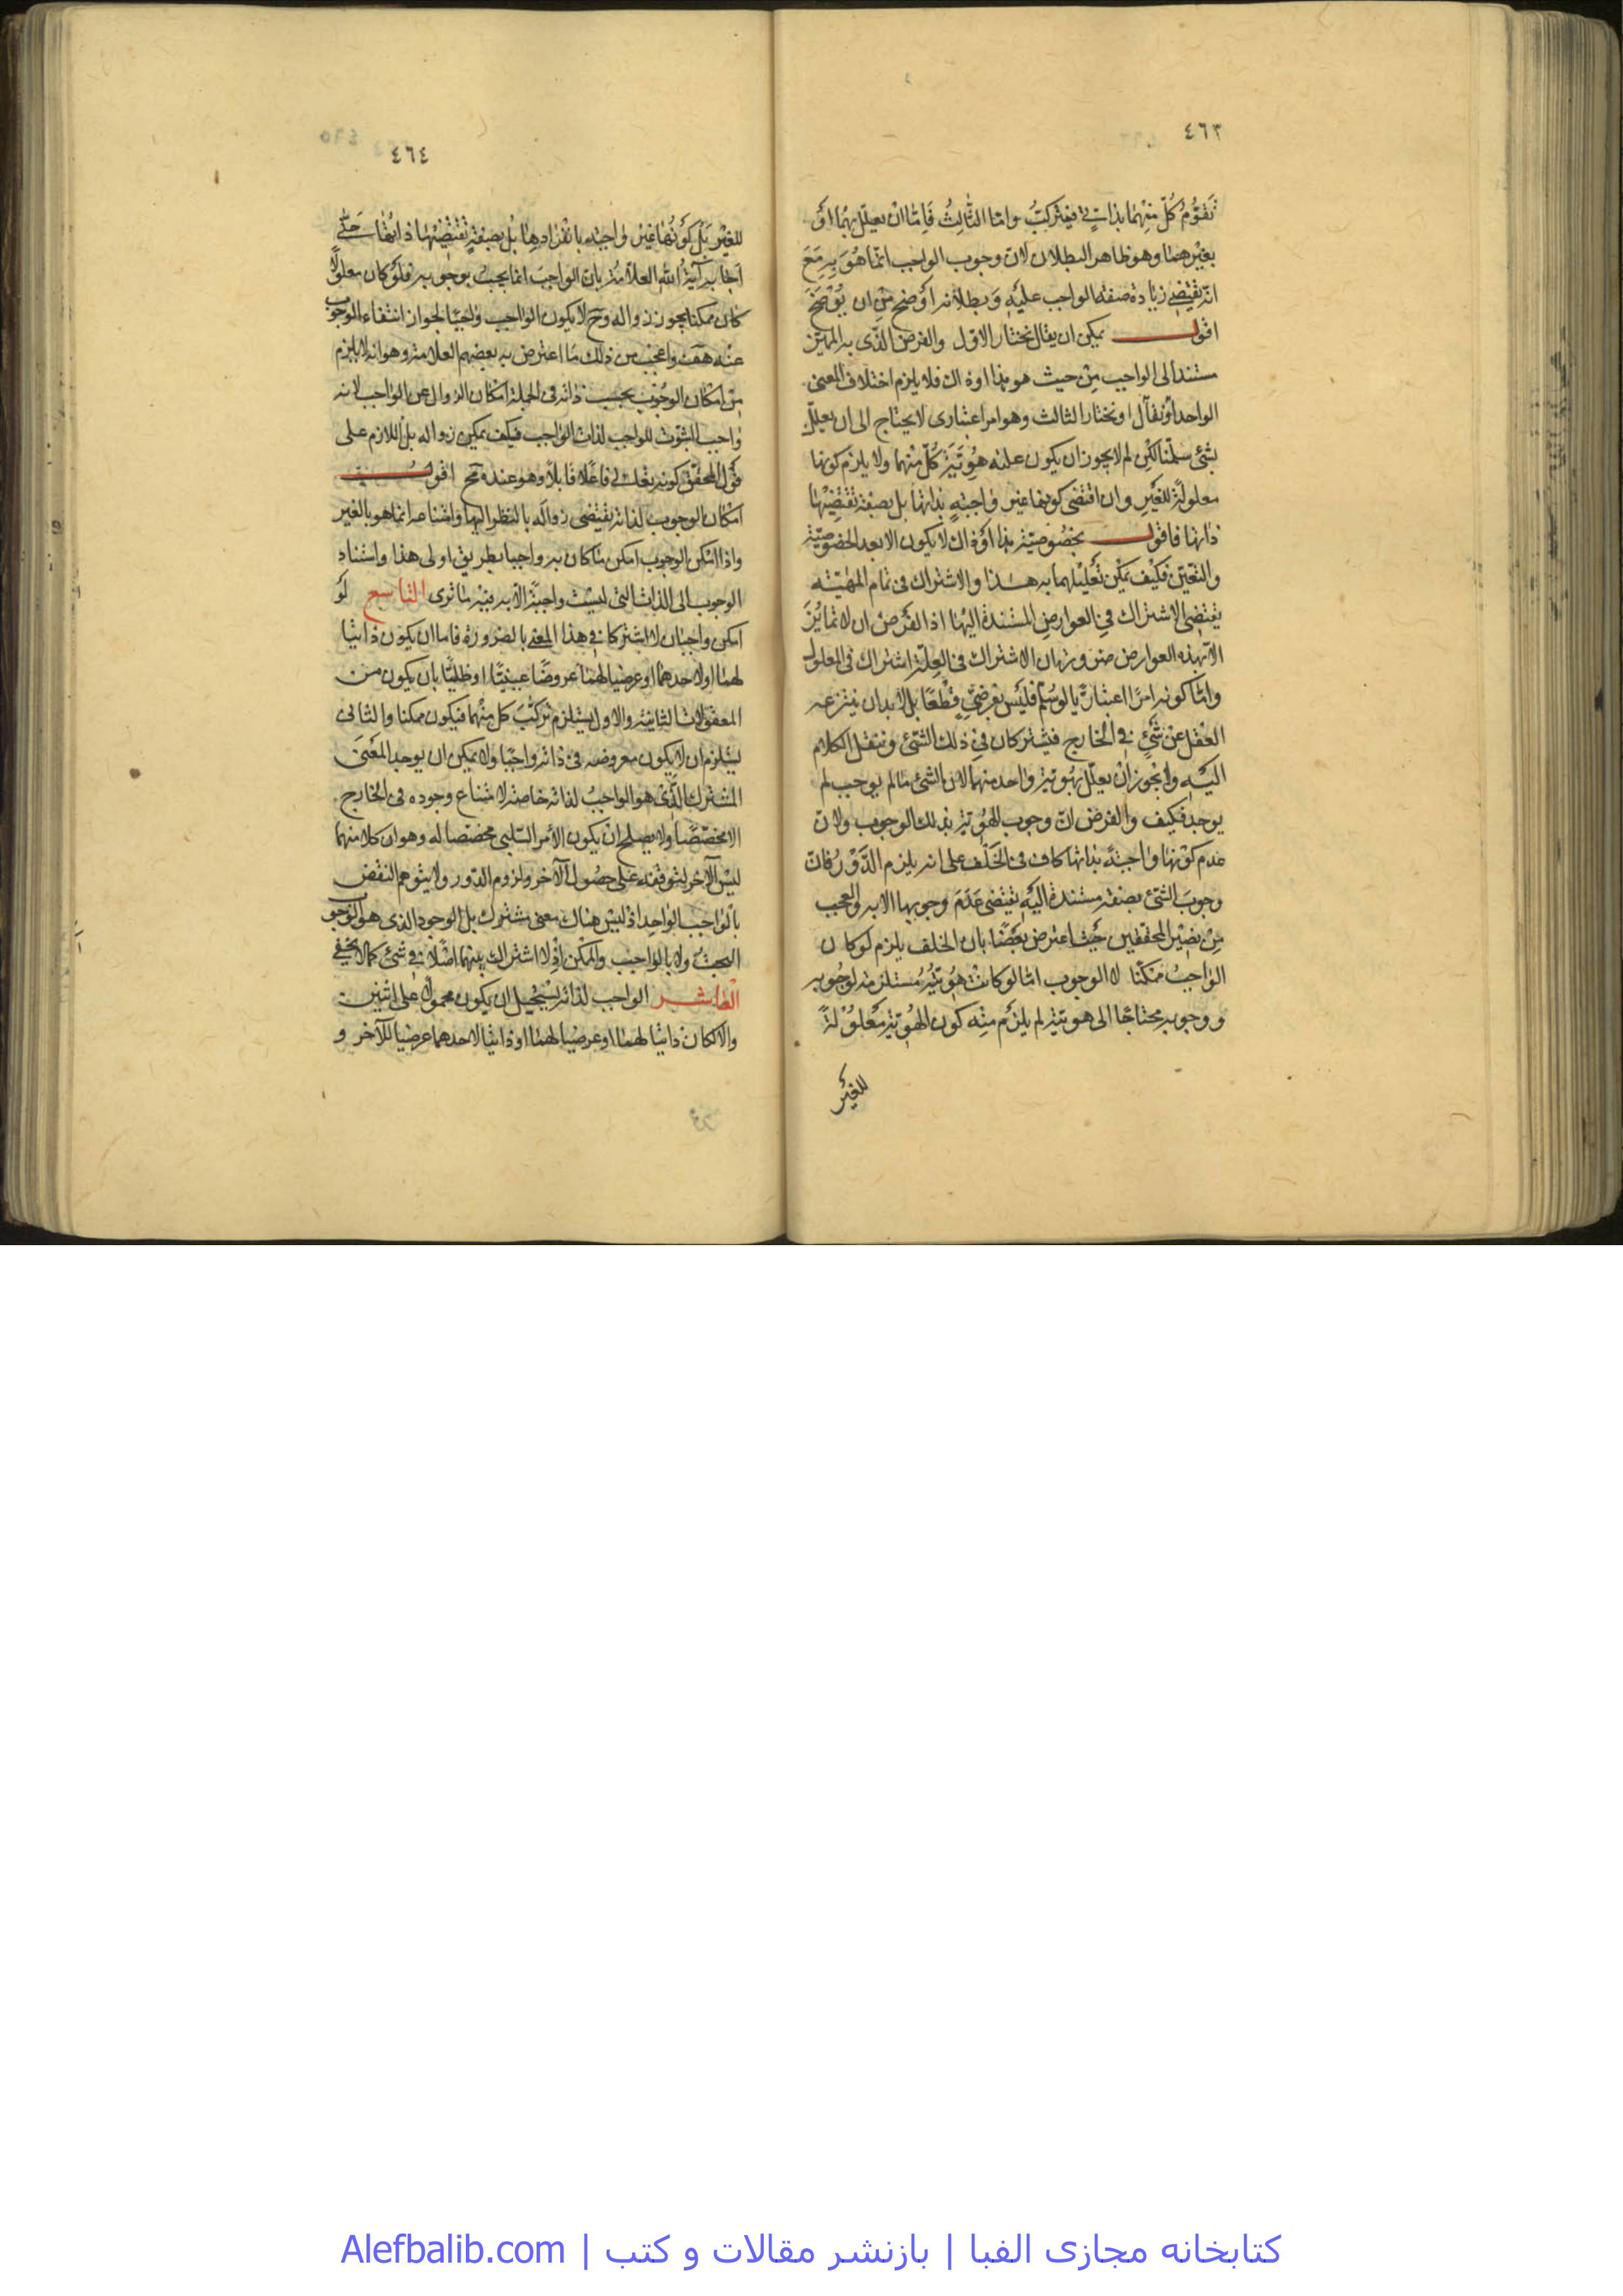 ٤٦٣
تقوّم كلّ منهما بذاتي فيتركب واما الثالث فاما ان يعلل بهما او
بغيرهما وهو ظاهر البطلان لان وجوب الواجب انما هو به مع
انه يقتضي زيادة صفة الواجب عليه وبطلانه اوضح من ان يوضح
اقول يمكن ان يقال نختار الاول والفرض الذى به الميز
مستند الى الواجب من حيث هو هذا او ذاك فلا يلزم اختلاف المعنى
الواحد او نقال او نختار الثالث وهو امر اعتبارى لا يحتاج الى ان يعلل
بشئ سلمنا لكن لم لا يجوز ان يكون علته هوية كل منهما ولا يلزم كونها
معلولة للغير وان اقتضى كونها غير واجبة بذاتها بل بصفة تقتضيها
ذاتها فاقول بخصوصية هذا او ذاك لا يكون الا بعد الخصوصية
والتعين فكيف يمكن تعليلهما به هذا والاشتراك فى تمام المهية
يقتضى الاشتراك في العوارض المستندة اليها اذ الفرض ان لا تمايز
الا بهذه العوارض ضرورة ان الاشتراك فى العلة اشتراك فى المعلول
واما كونه امرا اعتباريا لو سلم فليس بفرضي قطعا بل لابد ان ينتزعه
العقل عن شئ في الخارج فيشتركان في ذلك الشئ وننقل الكلام
اليه ولا يجوز ان يعلل بهوية واحد منهما لان الشئ ما لم يوجب لم
يوجد فكيف والفرض ان وجوب الهوية بذلك الوجوب ولان
عدم كونها واجبة بذاتها كاف فى الخلف على انه يلزم الدور فان
وجوب الشئ بصفة مستندة اليه يقتضى عدم وجوبها الا به والعجب
من نصير المحققين حيث اعترض بعضا بان الخلف يلزم لو كان
الواجب ممكنا لا الوجوب اما لو كانت هويته مستلزمة لوجوبه
ووجوبه محتاجا الى هويته لم يلزم منه كون الهوية معلولة
للغير
٤٦٤
للغير بل كونها غير واجبة بانفرادها بل بصفة تقتضيها ذاتها حتى
اجابه آية الله العلامة بان الواجب انما يجب بوجوبه فلو كان معلولا
كان ممكنا يجوز زواله وح لا يكون الواجب واجبا لجواز انتفاء الوجوب
عنه هف واعجب من ذلك ما اعترض به بعضهم العلامة وهو انه لا يلزم
من امكان الوجوب بحسب ذاته فى الجملة امكان الزوال عن الواجب لانه
واجب الثبوت للواجب لذات الواجب فكيف يمكن زواله بل اللازم على
قول المحقق كونه تعالى فاعلا قابلا وهو عنده مح اقول
امكان الوجوب لذاته يقتضى زواله بالنظر اليها وامتناعه انما هو بالغير
واذا امكن الوجوب امكن ما كان به واجبا بطريق اولى هذا واستناد
الوجوب الى الذات التى ليست واجبة الا به فيه ما ترى التاسع لو
امكن واجبان لاشتركا في هذا المعنى بالضرورة فاما ان يكون ذاتيا
لهما او لاحدهما او عرضيا لهما عروضا عينيا او ظليا بان يكون من
المعقولات الثانية والاول يستلزم تركب كل منهما فيكون ممكنا والثانى
يستلزم ان لا يكون معروضه فى ذاته واجبا ولا يمكن ان يوجد المعنى
المشترك الذى هو الواجب لذاته خاصة لامتناع وجوده فى الخارج
الا مخصصا ولا يصلح ان يكون الامر السلبى مخصصا له وهو ان كلا منهما
ليس الآخر لتوقفه على حصول الآخر ولزوم الدور ولا يتوهم النقض
بالواجب الواحد اذ ليس هناك معنى مشترك بل الوجود الذى هو الوجوب
البحت ولا بالواجب والممكن اذ لا اشتراك بينهما اصلا في شئ كما لا يخفى
العاشر الواجب لذاته يستحيل ان يكون محمولا على اثنين
والا لكان ذاتيا لهما او عرضيا لهما او ذاتيا لاحدهما عرضيا للآخر و
کتابخانه مجازی الفبا | بازنشر مقالات و کتب | Alefbalib.com